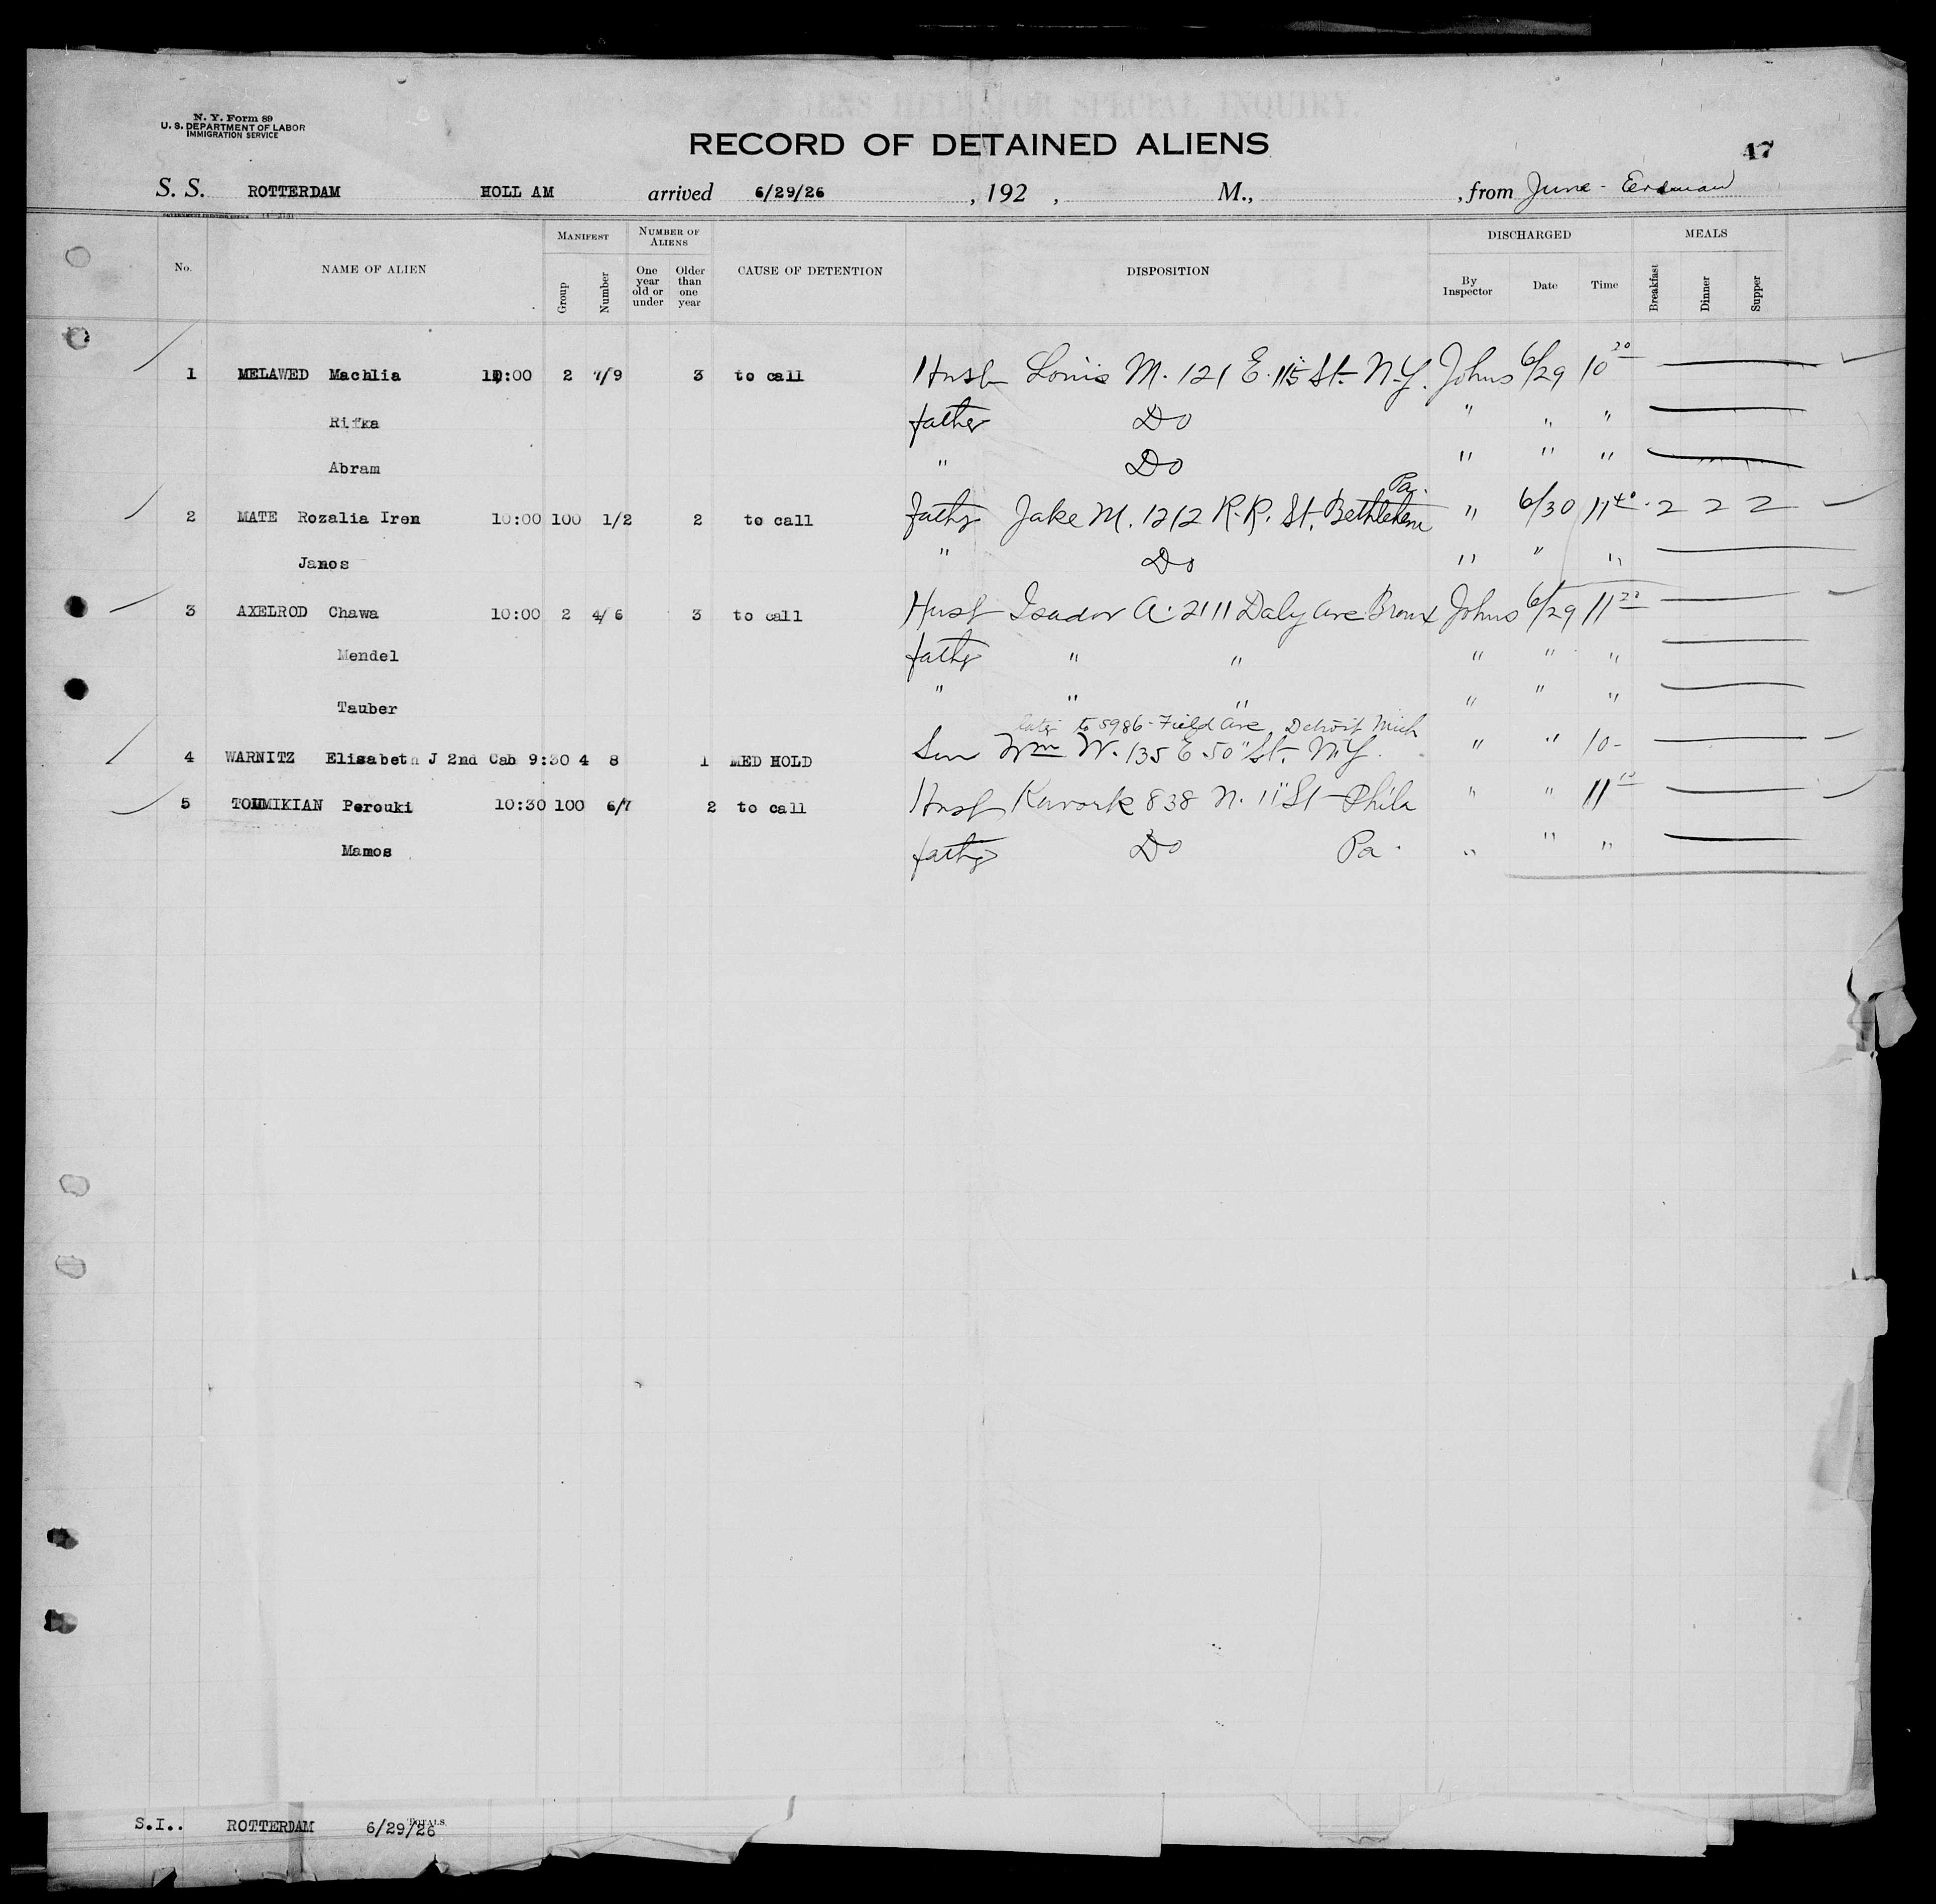 N. Y. Form 89
U. S. DEPARTMENT OF LABOR
IMMIGRATION SERVICE
RECORD OF DETAINED ALIENS
47
S. S. ROTTERDAM HOLL AM arrived 6/29/26 , 192 , M., , from June - Erdman
MANIFEST NUMBER OF ALIENS DISCHARGED MEALS
No. NAME OF ALIEN Group Number One year old or under Older than one year CAUSE OF DETENTION DISPOSITION By Inspector Date Time Breakfast Dinner Supper
1 MELAWED Machlia 10:00 2 7/9 3 to call Husb Louis M. 121 E. 115 St. N.Y. Johns 6/29 10 20
Rifka father Do " " "
Abram " Do " " "
Pa.
2 MATE Rozalia Iren 10:00 100 1/2 2 to call father Jake M. 1212 R.R. St. Bethlehem " 6/30 11 40 2 2 2
Janos " Do " " "
3 AXELROD Chawa 10:00 2 4/6 3 to call Husb Isador A. 2111 Daly Ave Bronx Johns 6/29 11 22
Mendel father " " " " "
Tauber " " " " " "
later to 5986 - Field Ave Detroit Mich
4 WARNITZ Elisabeth J 2nd Cab 9:30 4 8 1 MED HOLD Son Wm W. 135 E 50" St. N.Y. " " 10-
5 TOMMIKIAN Perouki 10:30 100 6/7 2 to call Husb Kevork 838 N. 11" St Phila " " 11
Mamos father Do Pa. " " "
S.I.. ROTTERDAM 6/29/26 TOTALS